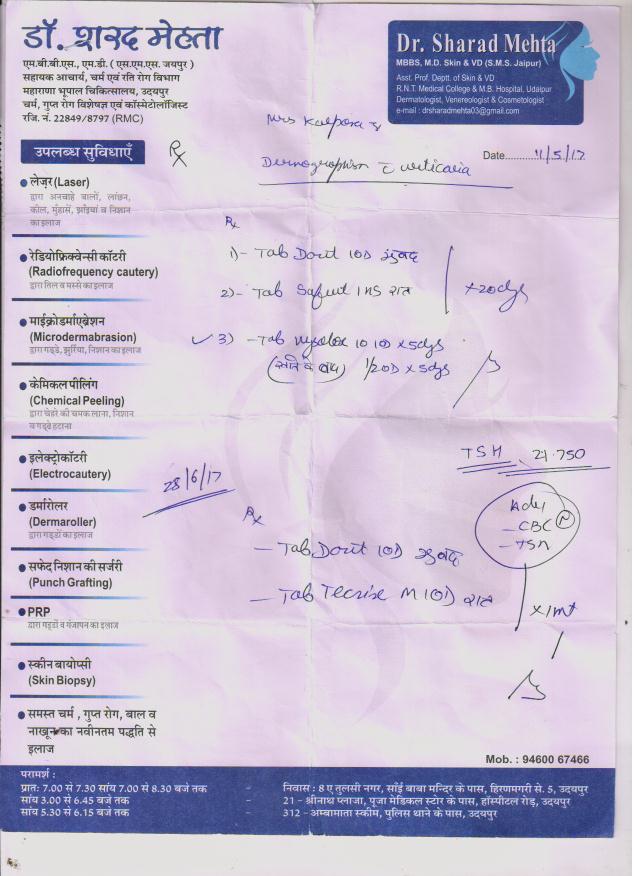 डॉ. शरद मेहता
एम.बी.बी.एस., एम.डी. (एस.एम.एस. जयपुर)
सहायक आचार्य, चर्म एवं रति रोग विभाग
महाराणा भूपाल चिकित्सालय, उदयपुर
चर्म, गुप्त रोग विशेषज्ञ एवं कॉस्मेटोलॉजिस्ट
रजि. नं. 22849/8797 (RMC)
Dr. Sharad Mehta
MBBS, M.D. Skin & VD (S.M.S. Jaipur)
Asst. Prof. Deptt. of Skin & VD
R.N.T. Medical College & M.B. Hospital, Udaipur
Dermatologist, Venereologist & Cosmetologist
e-mail : drsharadmehta03@gmail.com
Mrs
Date........... 11/5/17
Rx
उपलब्ध सुविधाएँ
लेज़र (Laser)
द्वारा अनचाहे बालों, लांछन,
कील, मुंहासें, झाँइयां व निशान
का इलाज
रेडियोफ्रिक्वेन्सी कॉटरी
(Radiofrequency cautery)
द्वारा तिल व मस्से का इलाज
माईक्रोडर्माएब्रेशन
(Microdermabrasion)
द्वारा गड्डे, झुर्रिया, निशान का इलाज
केमिकल पीलिंग
(Chemical Peeling)
द्वारा चेहरे की चमक लाना, निशान
व गड्ढे हटाना
इलेक्ट्रोकॉटरी
(Electrocautery)
डर्मारोलर
(Dermaroller)
द्वारा गड्डों का इलाज
सफेद निशान की सर्जरी
(Punch Grafting)
PRP
द्वारा गड्डों व गंजापन का इलाज
स्कीन बायोप्सी
(Skin Biopsy)
समस्त चर्म , गुप्त रोग, बाल व
नाखून का नवीनतम पद्धति से
इलाज
Dermographism c urticaria
Rx
1)- Tab 1OD सुबह
2)- Tab 1HS रात
x20dys
3) - Tab 10 1OD x5dys
1/2OD x5dys
TSH 21.750
Adv
- CBC P
- TSH
28/6/17
Rx
- Tab 1OD सुबह
- Tab M 1OD रात
x1mt
Mob. : 94600 67466
परामर्श :
प्रातः 7.00 से 7.30 सांय 7.00 से 8.30 बजे तक - निवास : 8 ए तुलसी नगर, साँई बाबा मन्दिर के पास, हिरणमगरी से. 5, उदयपुर
सांय 3.00 से 6.45 बजे तक - 21 - श्रीनाथ प्लाजा, पूजा मेडिकल स्टोर के पास, हॉस्पीटल रोड़, उदयपुर
सांय 5.30 से 6.15 बजे तक - 312 - अम्बामाता स्कीम, पुलिस थाने के पास, उदयपुर